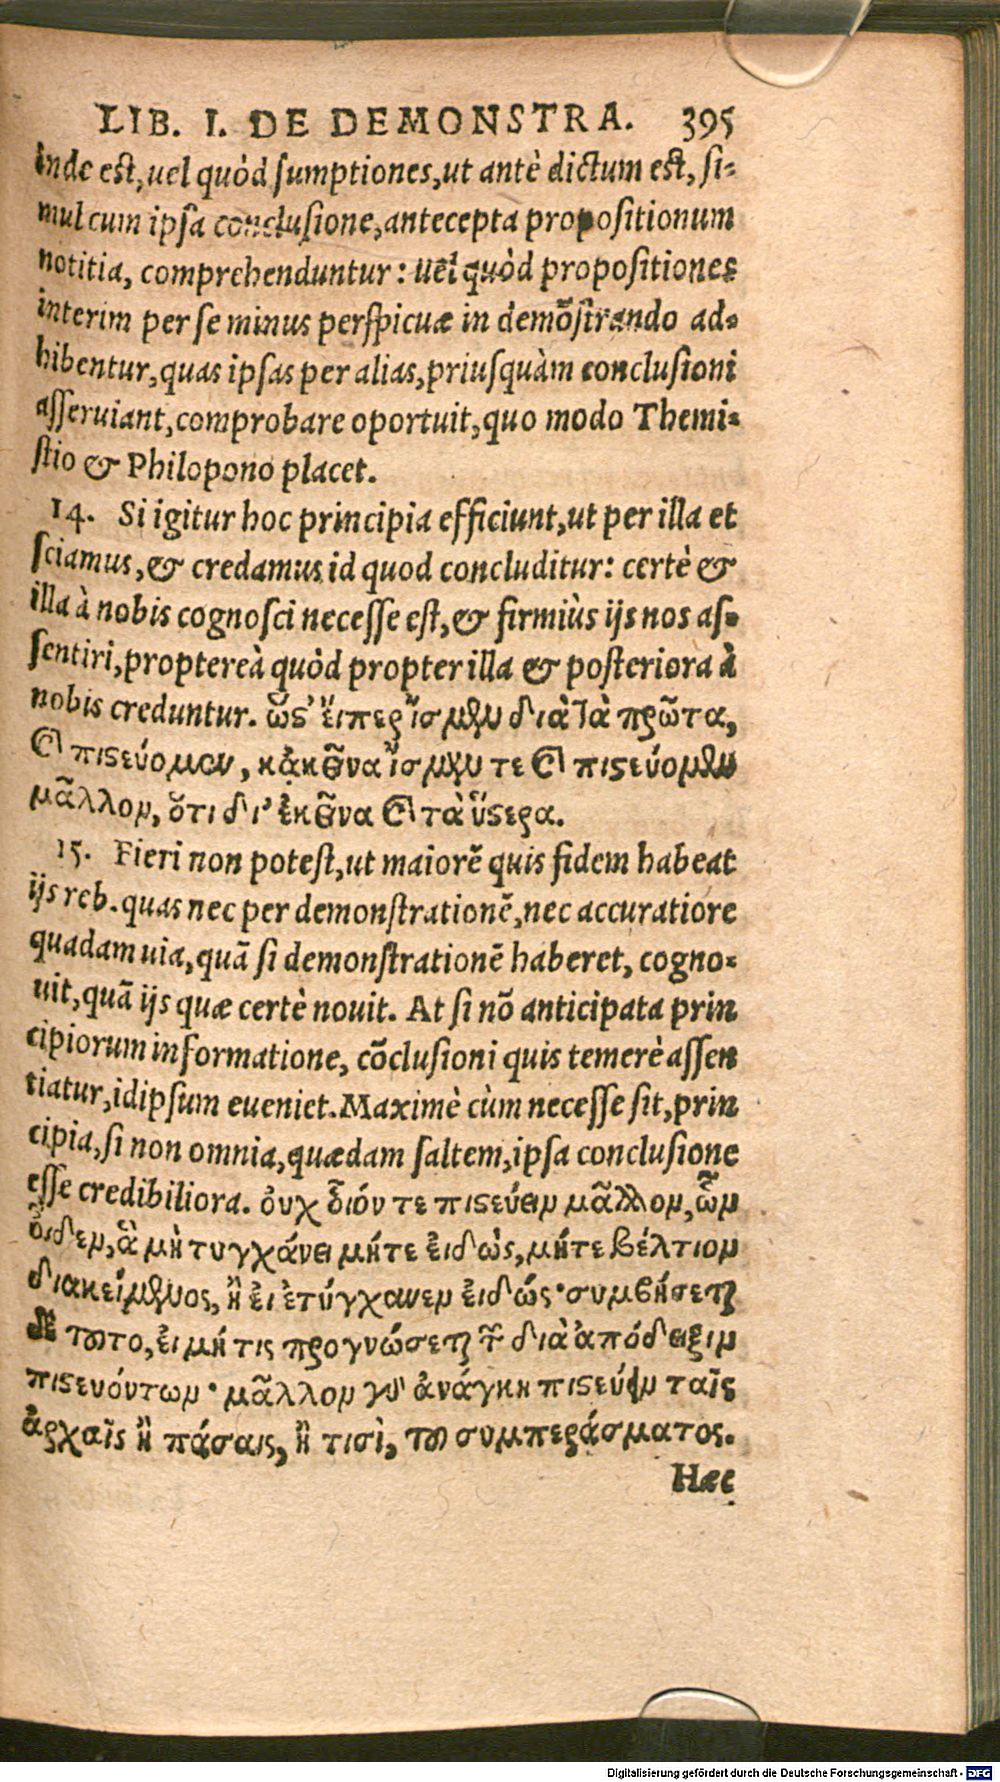 LIB. I. DE DEMONSTRA. 395
inde est, uel quòd sumptiones, ut antè dictum est, si-
mul cum ipsa conclusione, antecepta propositionum
notitia, comprehenduntur: uel quòd propositiones
interim per se minus perspicuæ in demõstrando ad-
hibentur, quas ipsas per alias, priusquàm conclusioni
asseruiant, comprobare oportuit, quo modo Themi-
stio & Philopono placet.
14. Si igitur hoc principia efficiunt, ut per illa et
sciamus, & credamus id quod concluditur: certè &
illa à nobis cognosci necesse est, & firmiùs ijs nos as-
sentiri, proptereà quòd propter illa & posteriora à
nobis creduntur. ὥς' ἔιπερ ἴσμεν διὰ τὰ πρῶτα,
καὶ πιςεύομεν, κἀκεῖνα ἴσμεν τε καὶ πιςεύομεν
μᾶλλον, ὅτι δι' ἐκεῖνα καὶ τὰ ὕςερα.
15. Fieri non potest, ut maiorẽ quis fidem habeat
ijs reb. quas nec per demonstrationẽ, nec accuratiore
quadam uia, quã si demonstrationẽ haberet, cogno-
uit, quã ijs quæ certè nouit. At si nõ anticipata prin
cipiorum informatione, cõclusioni quis temerè assen
tiatur, id ipsum eueniet. Maximè cùm necesse sit, prin
cipia, si non omnia, quædam saltem, ipsa conclusione
esse credibiliora. ὀυχ ὃιόν τε πιςεύειν μᾶλλον, ὧν
ὄιδεν, ἃ μὴ τυγχάνει μήτε ἐιδὼς, μήτε βέλτιον
διακείμενος, ἢ ἐι ἐτύγχανεν ἐιδώς· συμβήσεται
δὲ τοῦτο, ἐι μή τις προγνώσεται τῶν διὰ ἀπόδειξιν
πιςευόντων· μᾶλλον γὰρ ἀνάγκη πιςεύειν ταῖς
ἀρχαῖς ἢ πάσαις, ἢ τισὶ, τοῦ συμπεράσματος.
Hæc
Digitalisierung gefördert durch die Deutsche Forschungsgemeinschaft - DFG